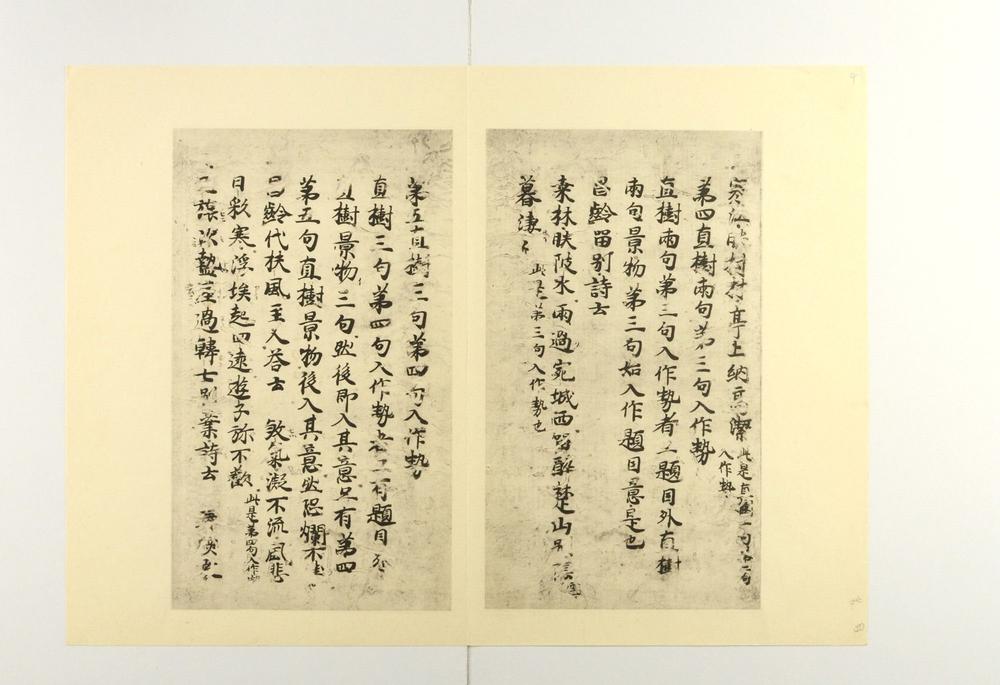 亭上納
此是直樹一句第二句
入作勢
第四直樹兩句第三句入作勢
直樹兩句第三句入作勢者亦題目外直樹
兩句景物第三句始入作題目意是也
昌齡留別詩云
桑林映陂水雨過宛城西留醉楚山別
暮淒々
此是第三句入作勢也
第五直樹三句第四句入作勢
直樹三句第四句入作勢者亦有題目外
直樹景物三句然後即入其意亦有第四
第五句直樹景物後入其意然恐爛不
昌齡代扶風主人答云 煞氣凝不流風悲
日彩寒浮埃起四遠遊子弥不歡
此是第四句入作勢
又旅次盩厔過韓七別業詩云